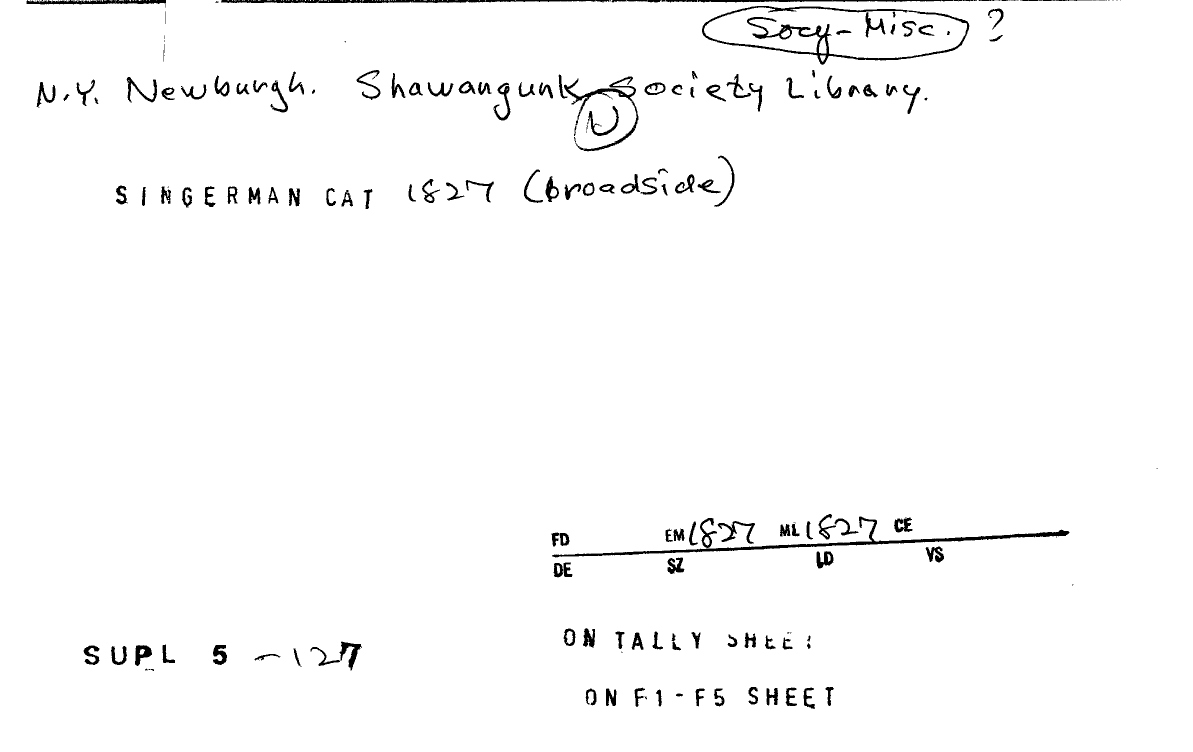 Socy-Misc. ?
N.Y. Newburgh. Shawangunk Society Library.
N
SINGERMAN CAT 1827 (broadside)
FD EM 1827 ML 1827 CE
DE SZ LD VS
ON TALLY SHEET
SUPL 5 -127
ON F1-F5 SHEET